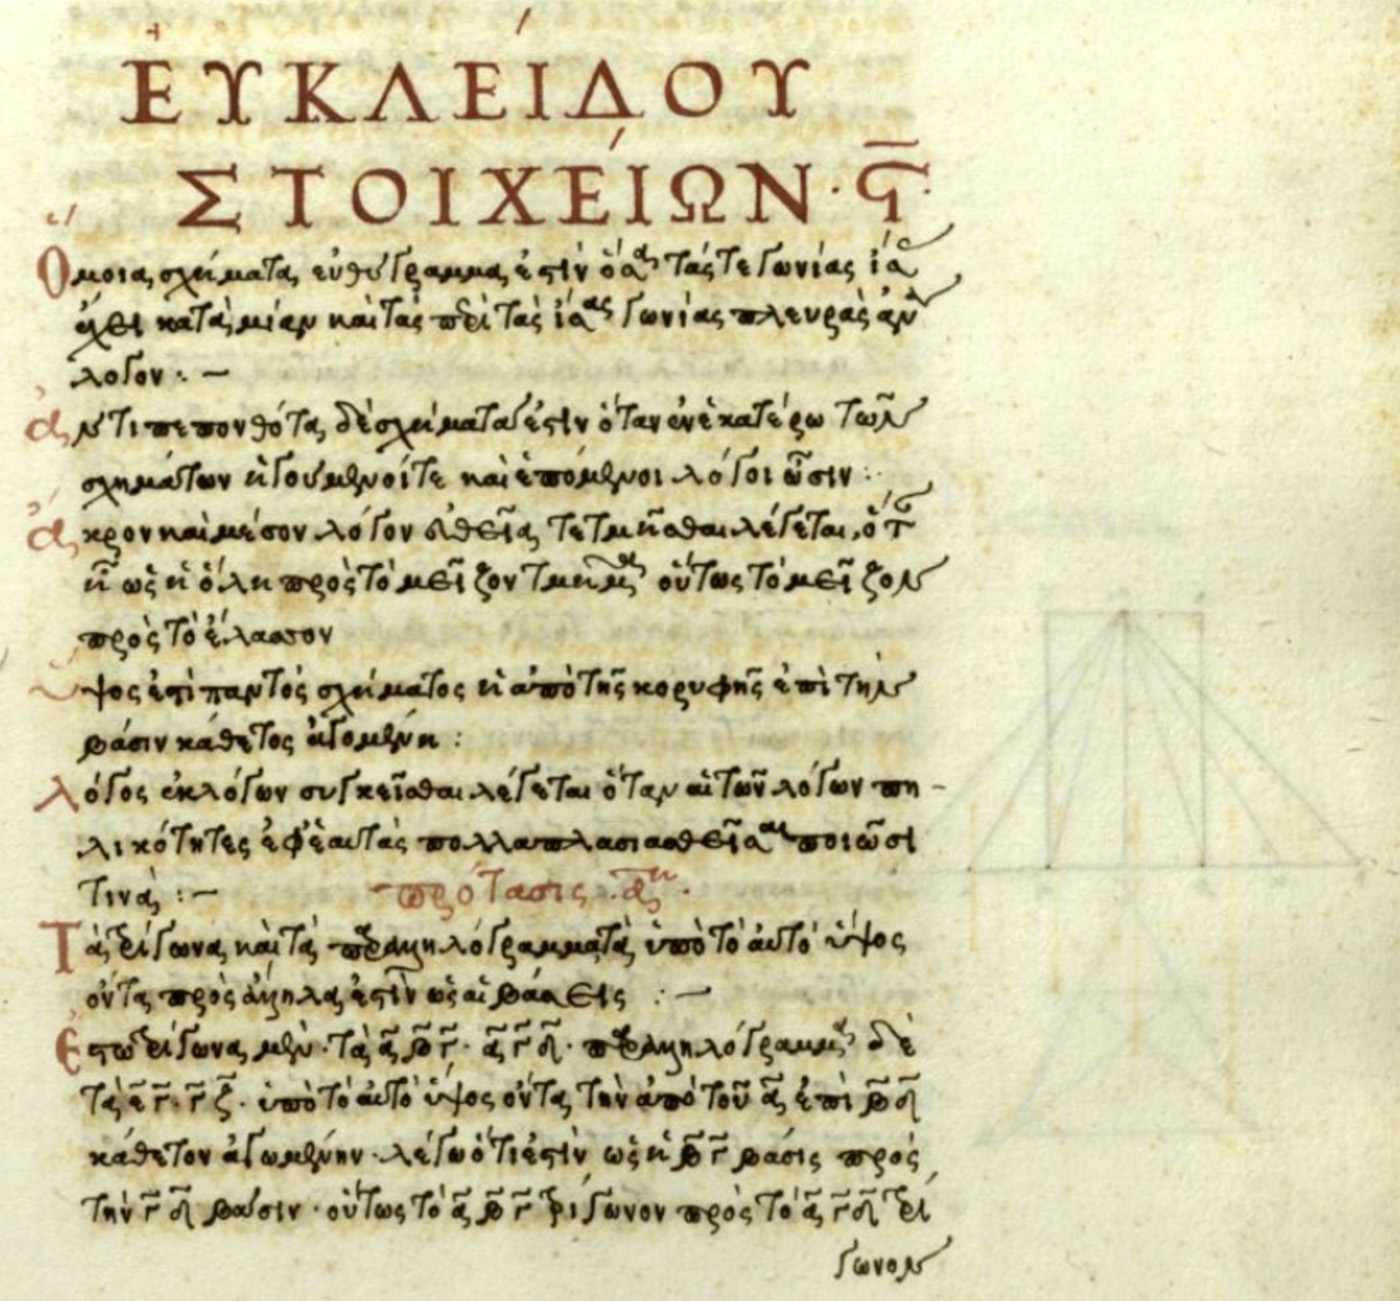 ΕΥΚΛΕΊΔΟΥ
ΣΤΟΙΧΕΊΩΝ · ϛ̄ ·
Ὅμοια σχήματα εὐθύγραμμα ἐστὶν ὅσα τάς τε γωνίας ἴσας
ἔχει κατὰ μίαν καὶ τὰς περὶ τὰς ἴσας γωνίας πλευρὰς ἀνὰ
λογον : —
Ἀντιπεπονθότα δὲ σχήματα ἐστὶν ὅταν ἐν ἑκατέρω τῶν
σχημάτων ἡγούμενοί τε καὶ ἑπόμενοι λόγοι ὦσιν :
Ἄκρον καὶ μέσον λόγον εὐθεῖα τετμῆσθαι λέγεται, ὅταν
ἦ ὡς ἡ ὅλη πρὸς τὸ μεῖζον τμῆμα οὕτως τὸ μεῖζον
πρὸς τὸ ἔλασσον
Ὕψος ἐστὶ παντὸς σχήματος ἡ ἀπὸ τῆς κορυφῆς ἐπὶ τὴν
βάσιν κάθετος ἀγομένη :
Λόγος ἐκ λόγων συγκεῖσθαι λέγεται ὅταν αἱ τῶν λόγων πη -
λικότητες ἐφ' ἑαυτὰς πολλαπλασιασθεῖσαι ποιῶσι
τινά : —
πρότασις · αη ·
Τὰ τρίγωνα καὶ τὰ παραλληλόγραμματὰ ὑπὸ τὸ αὐτὸ ὕψος
ὄντα πρὸς ἄλληλα ἐστὶν ὡς αἱ βάσεις : —
Ἔστω τρίγωνα μὲν · τὰ ᾱ β̄ γ̄ · ᾱ γ̄ δ̄ · παραλληλόγραμμα δὲ
τὰ ε̄ γ̄ · γ̄ ζ̄ · ὑπὸ τὸ αὐτὸ ὕψος ὄντα τὴν ἀπὸ τοῦ ᾱ ἐπὶ β̄ δ̄
κάθετον ἀγωμένην · λέγω ὅτι ἐστὶν ὡς ἡ β̄ γ̄ βάσις πρὸς
τὴν γ̄ δ̄ βάσιν · οὕτως τὸ ᾱ β̄ γ̄ τρίγωνον πρὸς τὸ ᾱ γ̄ δ̄ τρί
γωνον